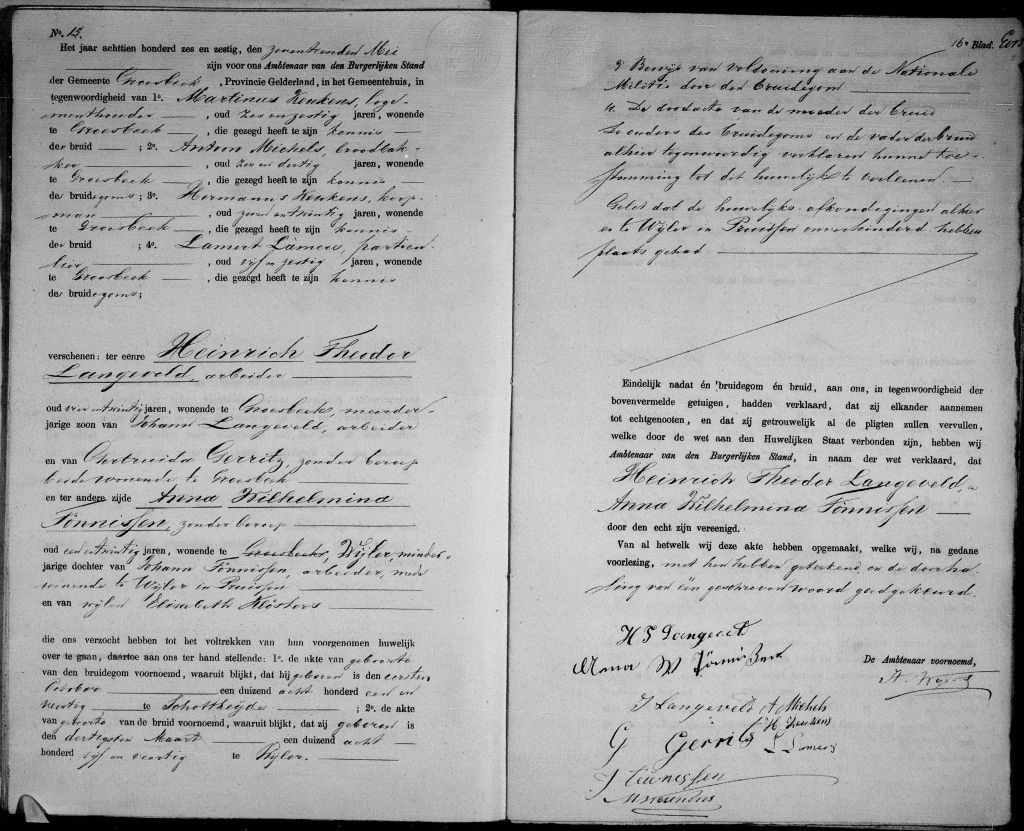 No. 15.
Het jaar achttien honderd zes en zestig, den zeventienden Mei
zijn voor ons Ambtenaar van den Burgerlijken Stand
der Gemeente Groesbeek, Provincie Gelderland, in het Gemeentehuis, in
tegenwoordigheid van 1o. Martinus Keukens, loge-
menthouder, oud zes en zestig jaren, wonende
te Groesbeek, die gezegd heeft te zijn kennis
der bruid ; 2o. Antoon Michels, broodbak-
ker, oud zes en dertig jaren, wonende
te Groesbeek, die gezegd heeft te zijn kennis
des bruidegoms; 3o. Hermanus Keukens, koop-
man, oud zeven en twintig jaren, wonende
te Groesbeek, die gezegd heeft te zijn kennis
der bruid ; 4o. Lamert Lamers, particu-
lier, oud vijf en zestig jaren, wonende
te Groesbeek, die gezegd heeft te zijn kennis
des bruidegoms;
verschenen: ter eenre Heinrich Theodor
Langeveld, arbeider
oud vier en twintig jaren, wonende te Groesbeek, meerder-
jarige zoon van Johann Langeveld, arbeider
en van Gertruida Gerritz, zonder beroep
beide wonende te Groesbeek
en ter andere zijde Anna Wilhelmina
Tönnissen, zonder beroep
oud een en twintig jaren, wonende te Groesbeek, Wyler, minder-
jarige dochter van Johann Tönnissen, arbeider, mede
wonende te Wyler in Pruissen
en van wijlen Elisabeth Küsters
die ons verzocht hebben tot het voltrekken van hun voorgenomen huwelijk
over te gaan, daartoe aan ons ter hand stellende: 1o. de akte van geboorte
van den bruidegom voornoemd, waaruit blijkt, dat hij geboren is den eersten
October een duizend acht honderd een en
veertig te Schottheyde ; 2o. de akte
van geboorte van de bruid voornoemd, waaruit blijkt, dat zij geboren is
den dertigsten Maart een duizend acht
honderd vijf en veertig te Wyler.
16e Blad.
3o Bewijs van voldoening aan de Nationale
Militie door den Bruidegom
4. De doodacte van de moeder der bruid
De ouders des Bruidegoms en de vader der bruid
alhier tegenwoordig verklaren hunne toe-
stemming tot dit huwelijk te verleenen
Gelet dat de huwelijks-afkondigingen alhier
en te Wyler in Pruissen onverhinderd hebben
plaats gehad
Eindelijk nadat én bruidegom én bruid, aan ons, in tegenwoordigheid der
bovenvermelde getuigen, hadden verklaard, dat zij elkander aannemen
tot echtgenooten, en dat zij getrouwelijk al de pligten zullen vervullen,
welke door de wet aan den Huwelijken Staat verbonden zijn, hebben wij
Ambtenaar van den Burgerlijken Stand, in naam der wet verklaard, dat
Heinrich Theodor Langeveld, a
Anna Wilhelmina Tönnissen
door den echt zijn vereenigd.
Van al hetwelk wij deze akte hebben opgemaakt, welke wij, na gedane
voorlezing, met hen hebben geteekend en de doorha-
ling van één geschreven woord goedgekeurd.
H T Langevelt
Anna W Tönnissen
De Ambtenaar voornoemd,
J Langeveld A Michels
H Keukens
G Gerrits L Lamers
J Teunessen
M Keukens